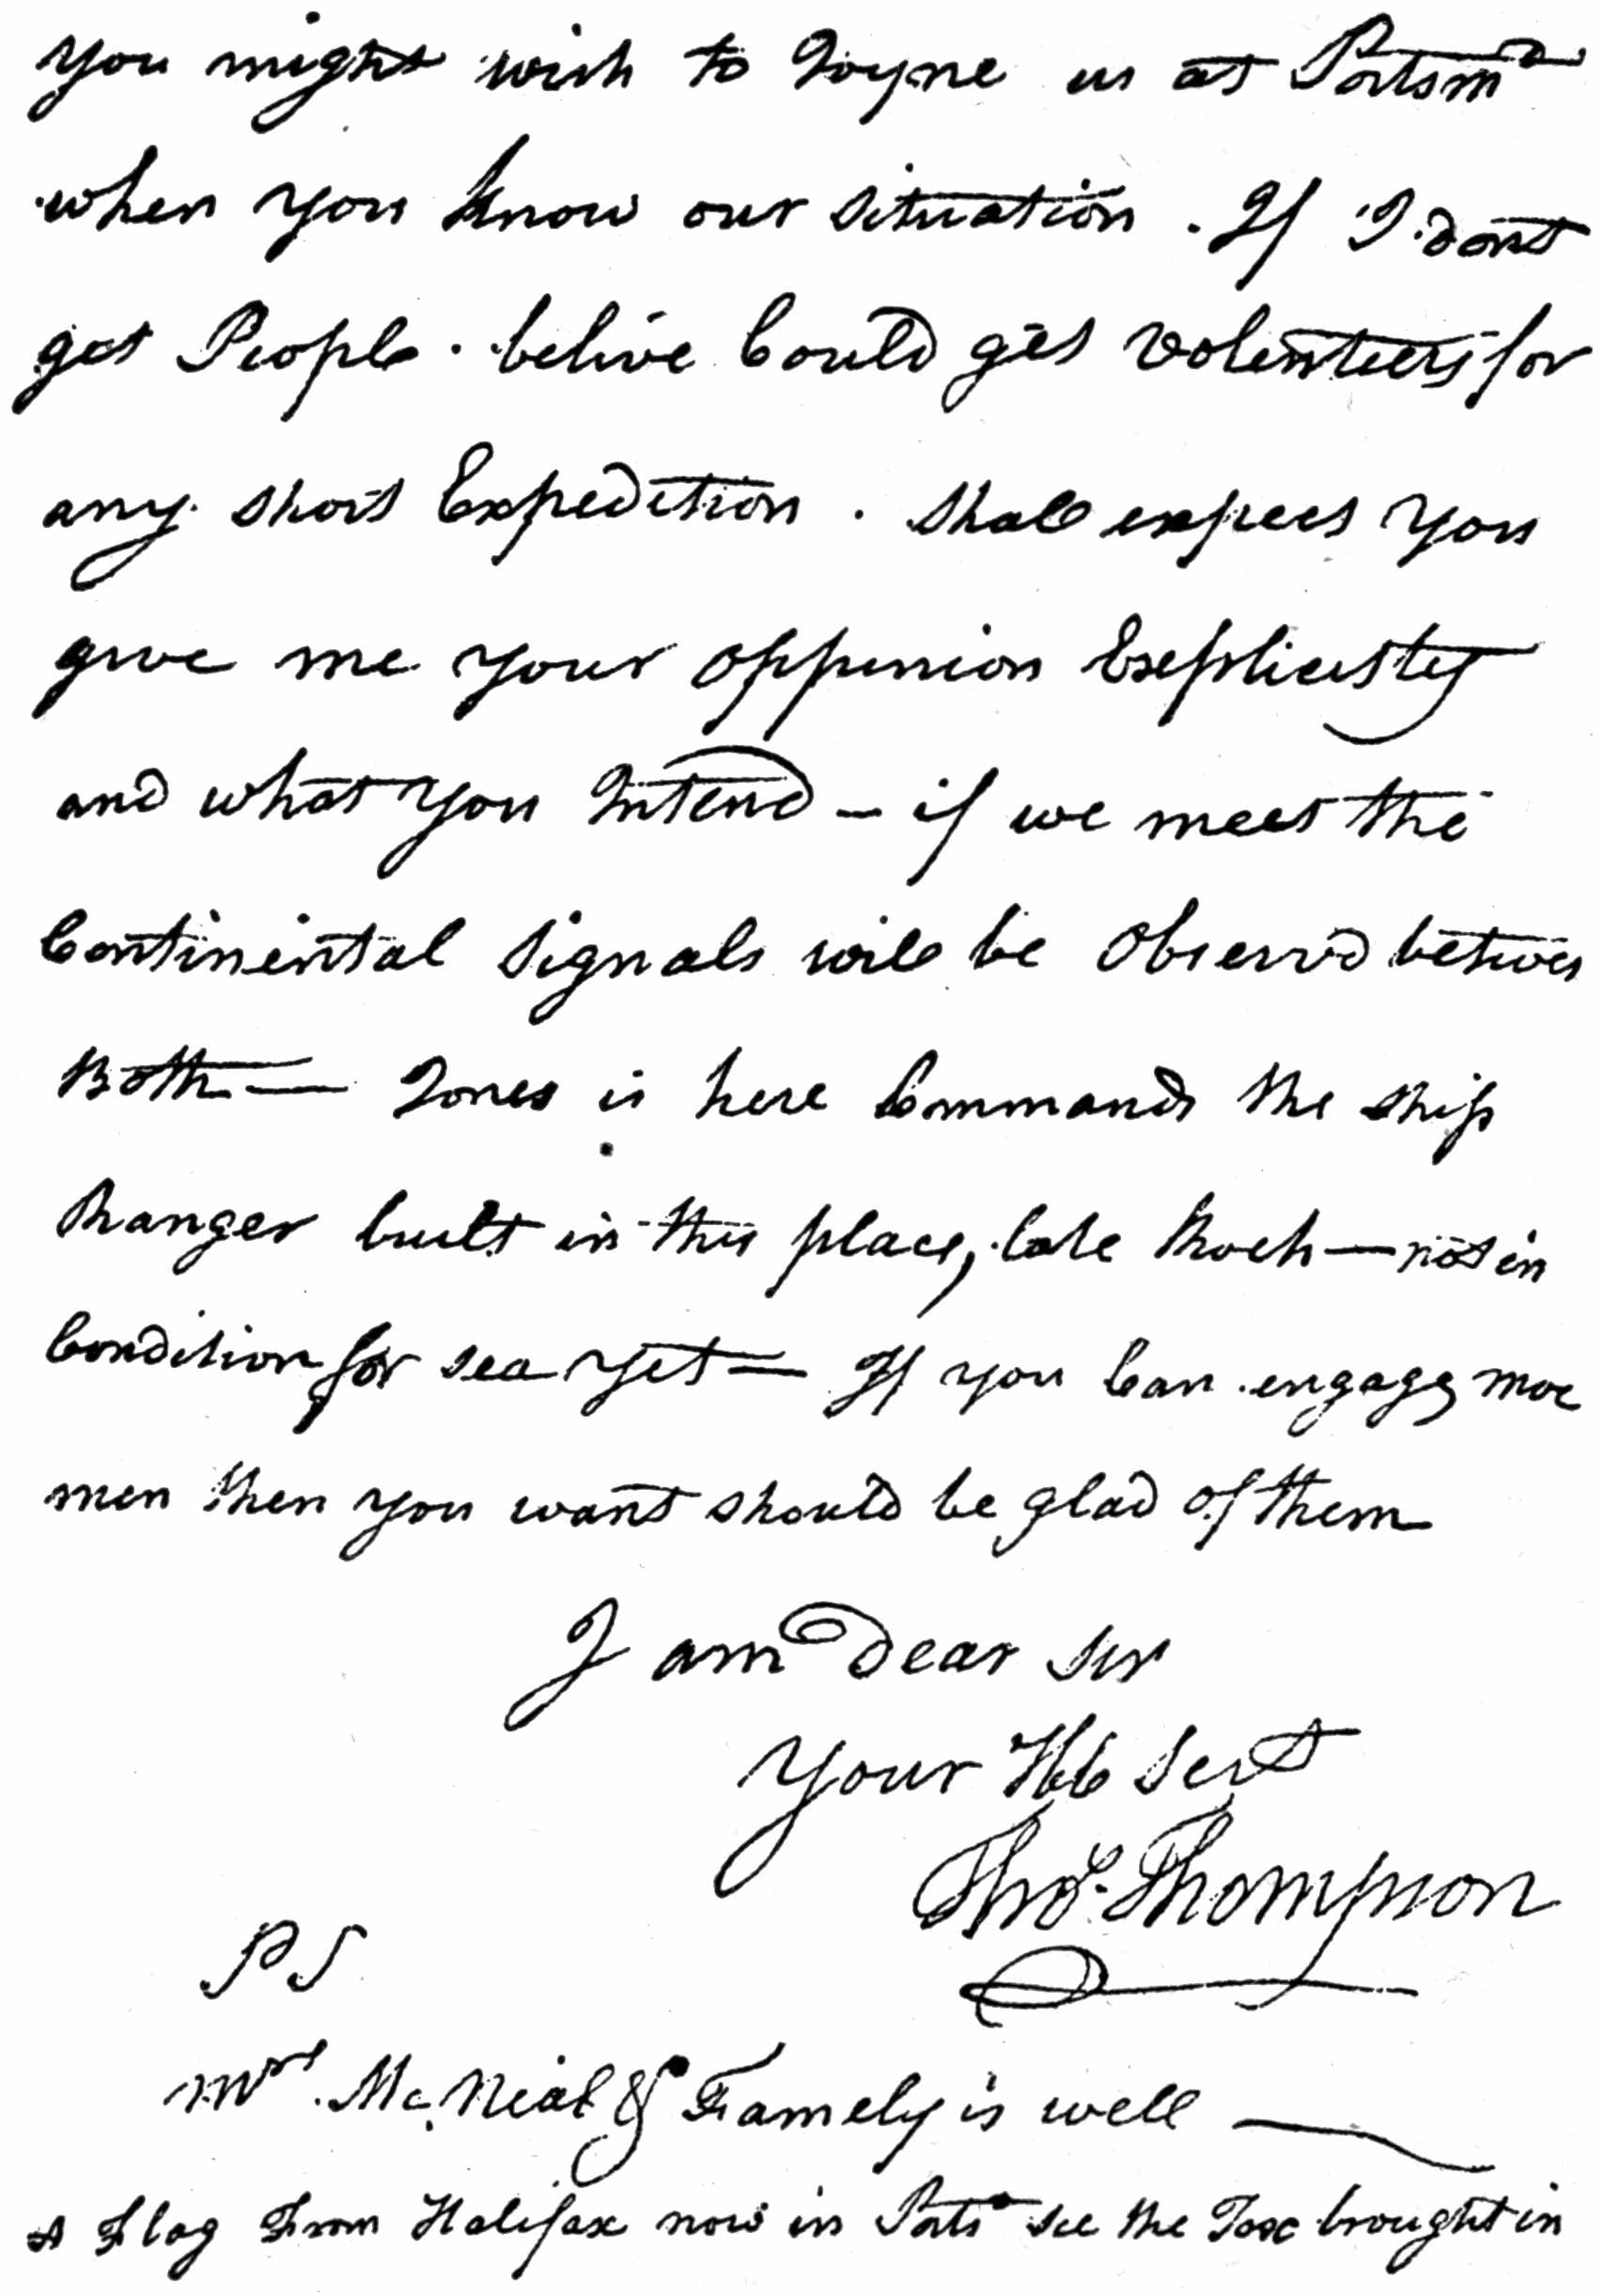 you might wish to Joyne us at Portsmo
when you know our situation. If I dont
get People. belive Could get Volenteers for
any short Expedetion. shall expect you
give me your oppinion Explicitly
and what you Intend – if we meet the
Continental Signals will be Observ'd between
Both — Jones is here Commands the ship
Ranger built in this place, late Roch — not in
Condition for sea yet — If you Can engage more
men then you want should be glad of them
I am Dear Sir
your Hb Sert
Thos. Thompson
PS
Mrs. McNeal & Famely is well —
A Flag From Halifax now in Ports see the Fox brought in